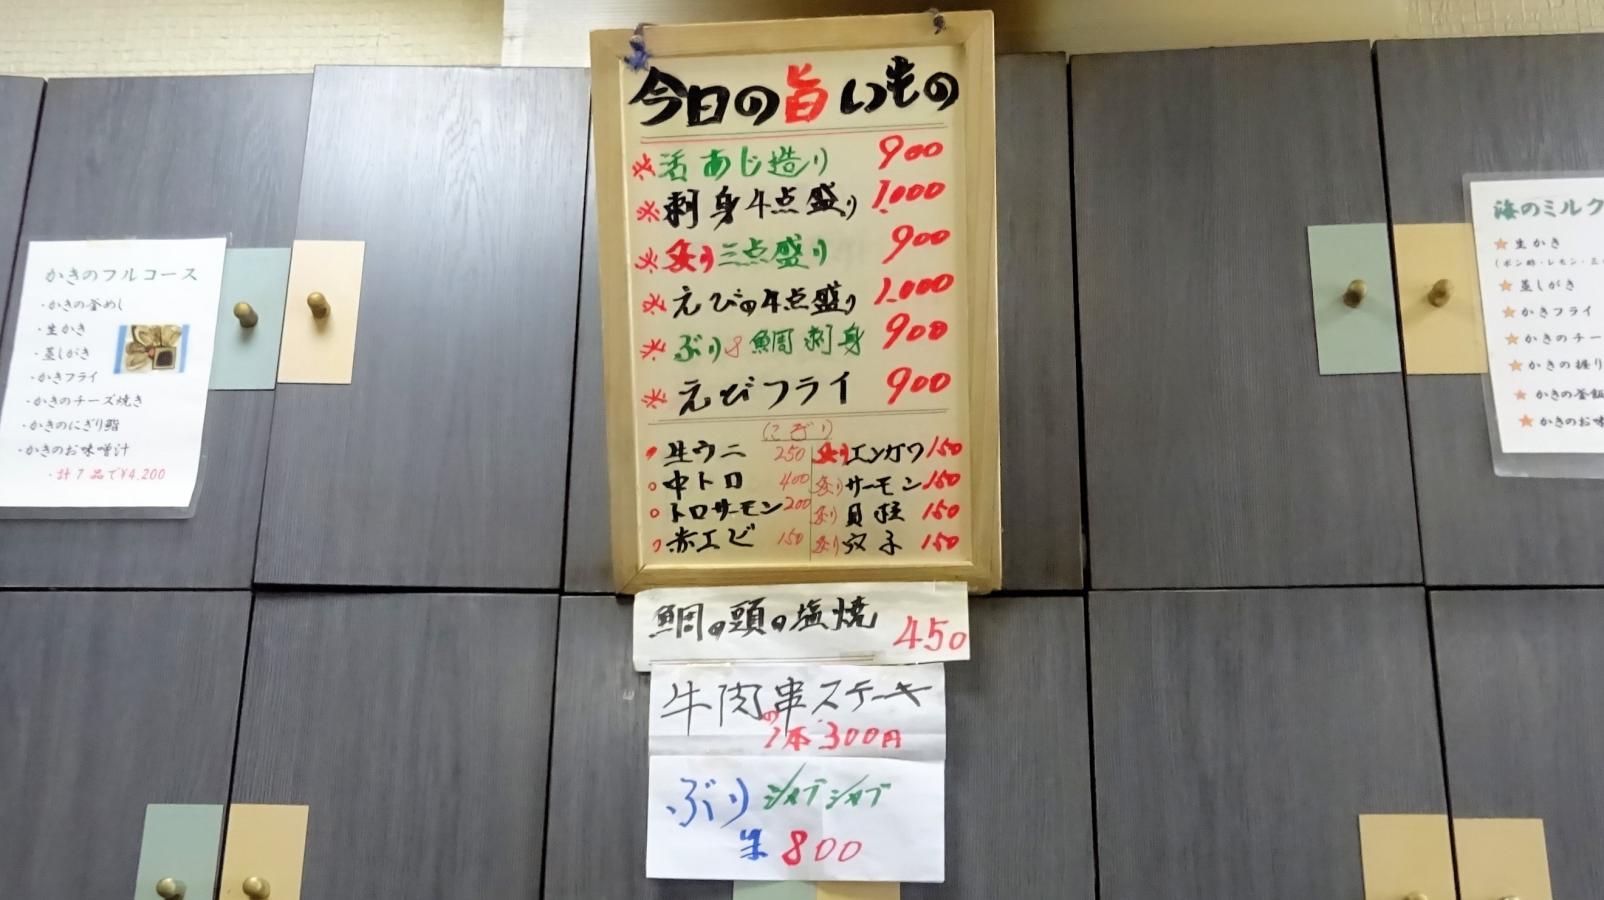 かきのフルコース
・かきの釜めし
・生かき
・蒸しがき
・かきフライ
・かきのチーズ焼き
・かきのにぎり鮨
・かきのお味噌汁
・計7品で¥4,200
今日の旨いもの
※活あじ造り 900
※刺身4点盛り 1,000
※炙り三点盛り 900
※えびの4点盛り 1,000
※ぶりと鯛刺身 900
※えびフライ 900
(にぎり)
生ウニ 250
中トロ 400
トロサーモン 200
赤エビ 150
炙りエンガワ 150
炙りサーモン 150
炙り貝柱 150
炙り穴子 150
鯛の頭の塩焼 450
牛肉串ステーキ
の1本 300円
ぶりシャブシャブ
800
海のミルク
★生かき
(ポン酢・レモン・
★蒸しがき
★かきフライ
★かきのチー
★かきの握り
★かきの釜飯
★かきのお味